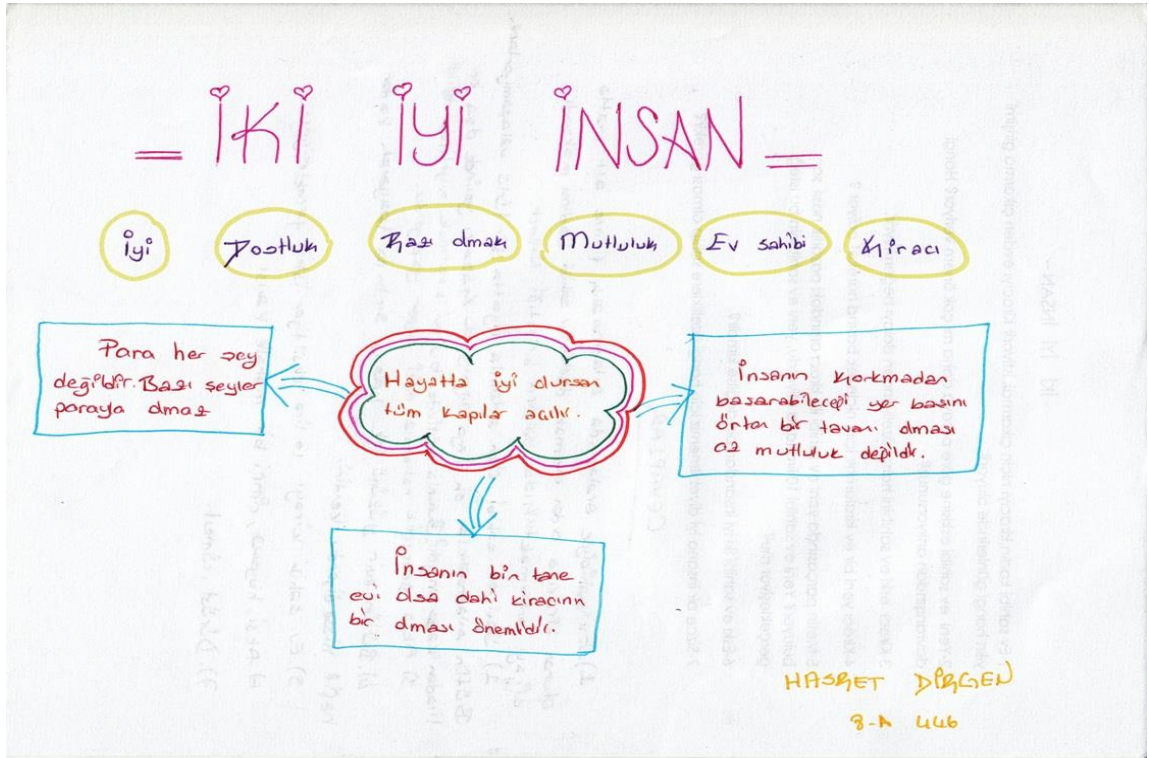 = İKİ İYİ İNSAN =
İyi Dostluk Razı olmak Mutluluk Ev sahibi Kiracı
Para her şey
değildir. Bazı şeyler
paraya olmaz
Hayatta iyi olursan
tüm kapılar açılır.
İnsanın korkmadan
basarabileceği yer başını
örten bir tavanı olması
az mutluluk değildir.
İnsanın bin tane
evi olsa dahi kiracının
bir olması önemlidir.
HASRET DİRGEN
8-A 446